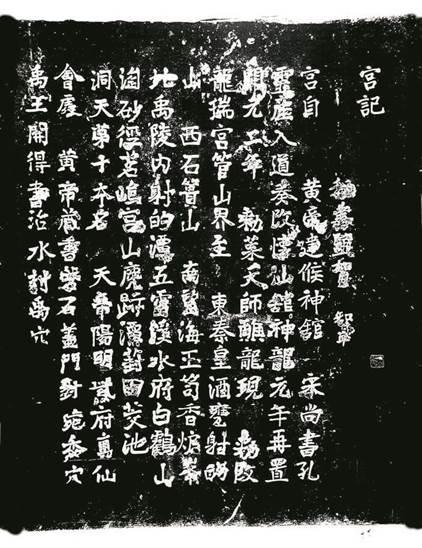 宮記
秘書監賀知章
宮自 黃帝建候神館 宋尚書孔
靈產入道奏改懷仙館神龍元年再置
開元二年 勑葉天師醮龍現 勑改
龍瑞宮管山界至 東秦皇酒甕射的
山 西石簣山 南望海玉笥香爐峯
北禹陵內射的潭五雲溪水府白鶴山
淘砂徑茗塢宮山鹿跡潭葑田茭池
洞天第十本名 天帝陽明紫府真仙
會處 黃帝藏書磐石蓋門封宛委穴
禹至開得書治水封禹穴